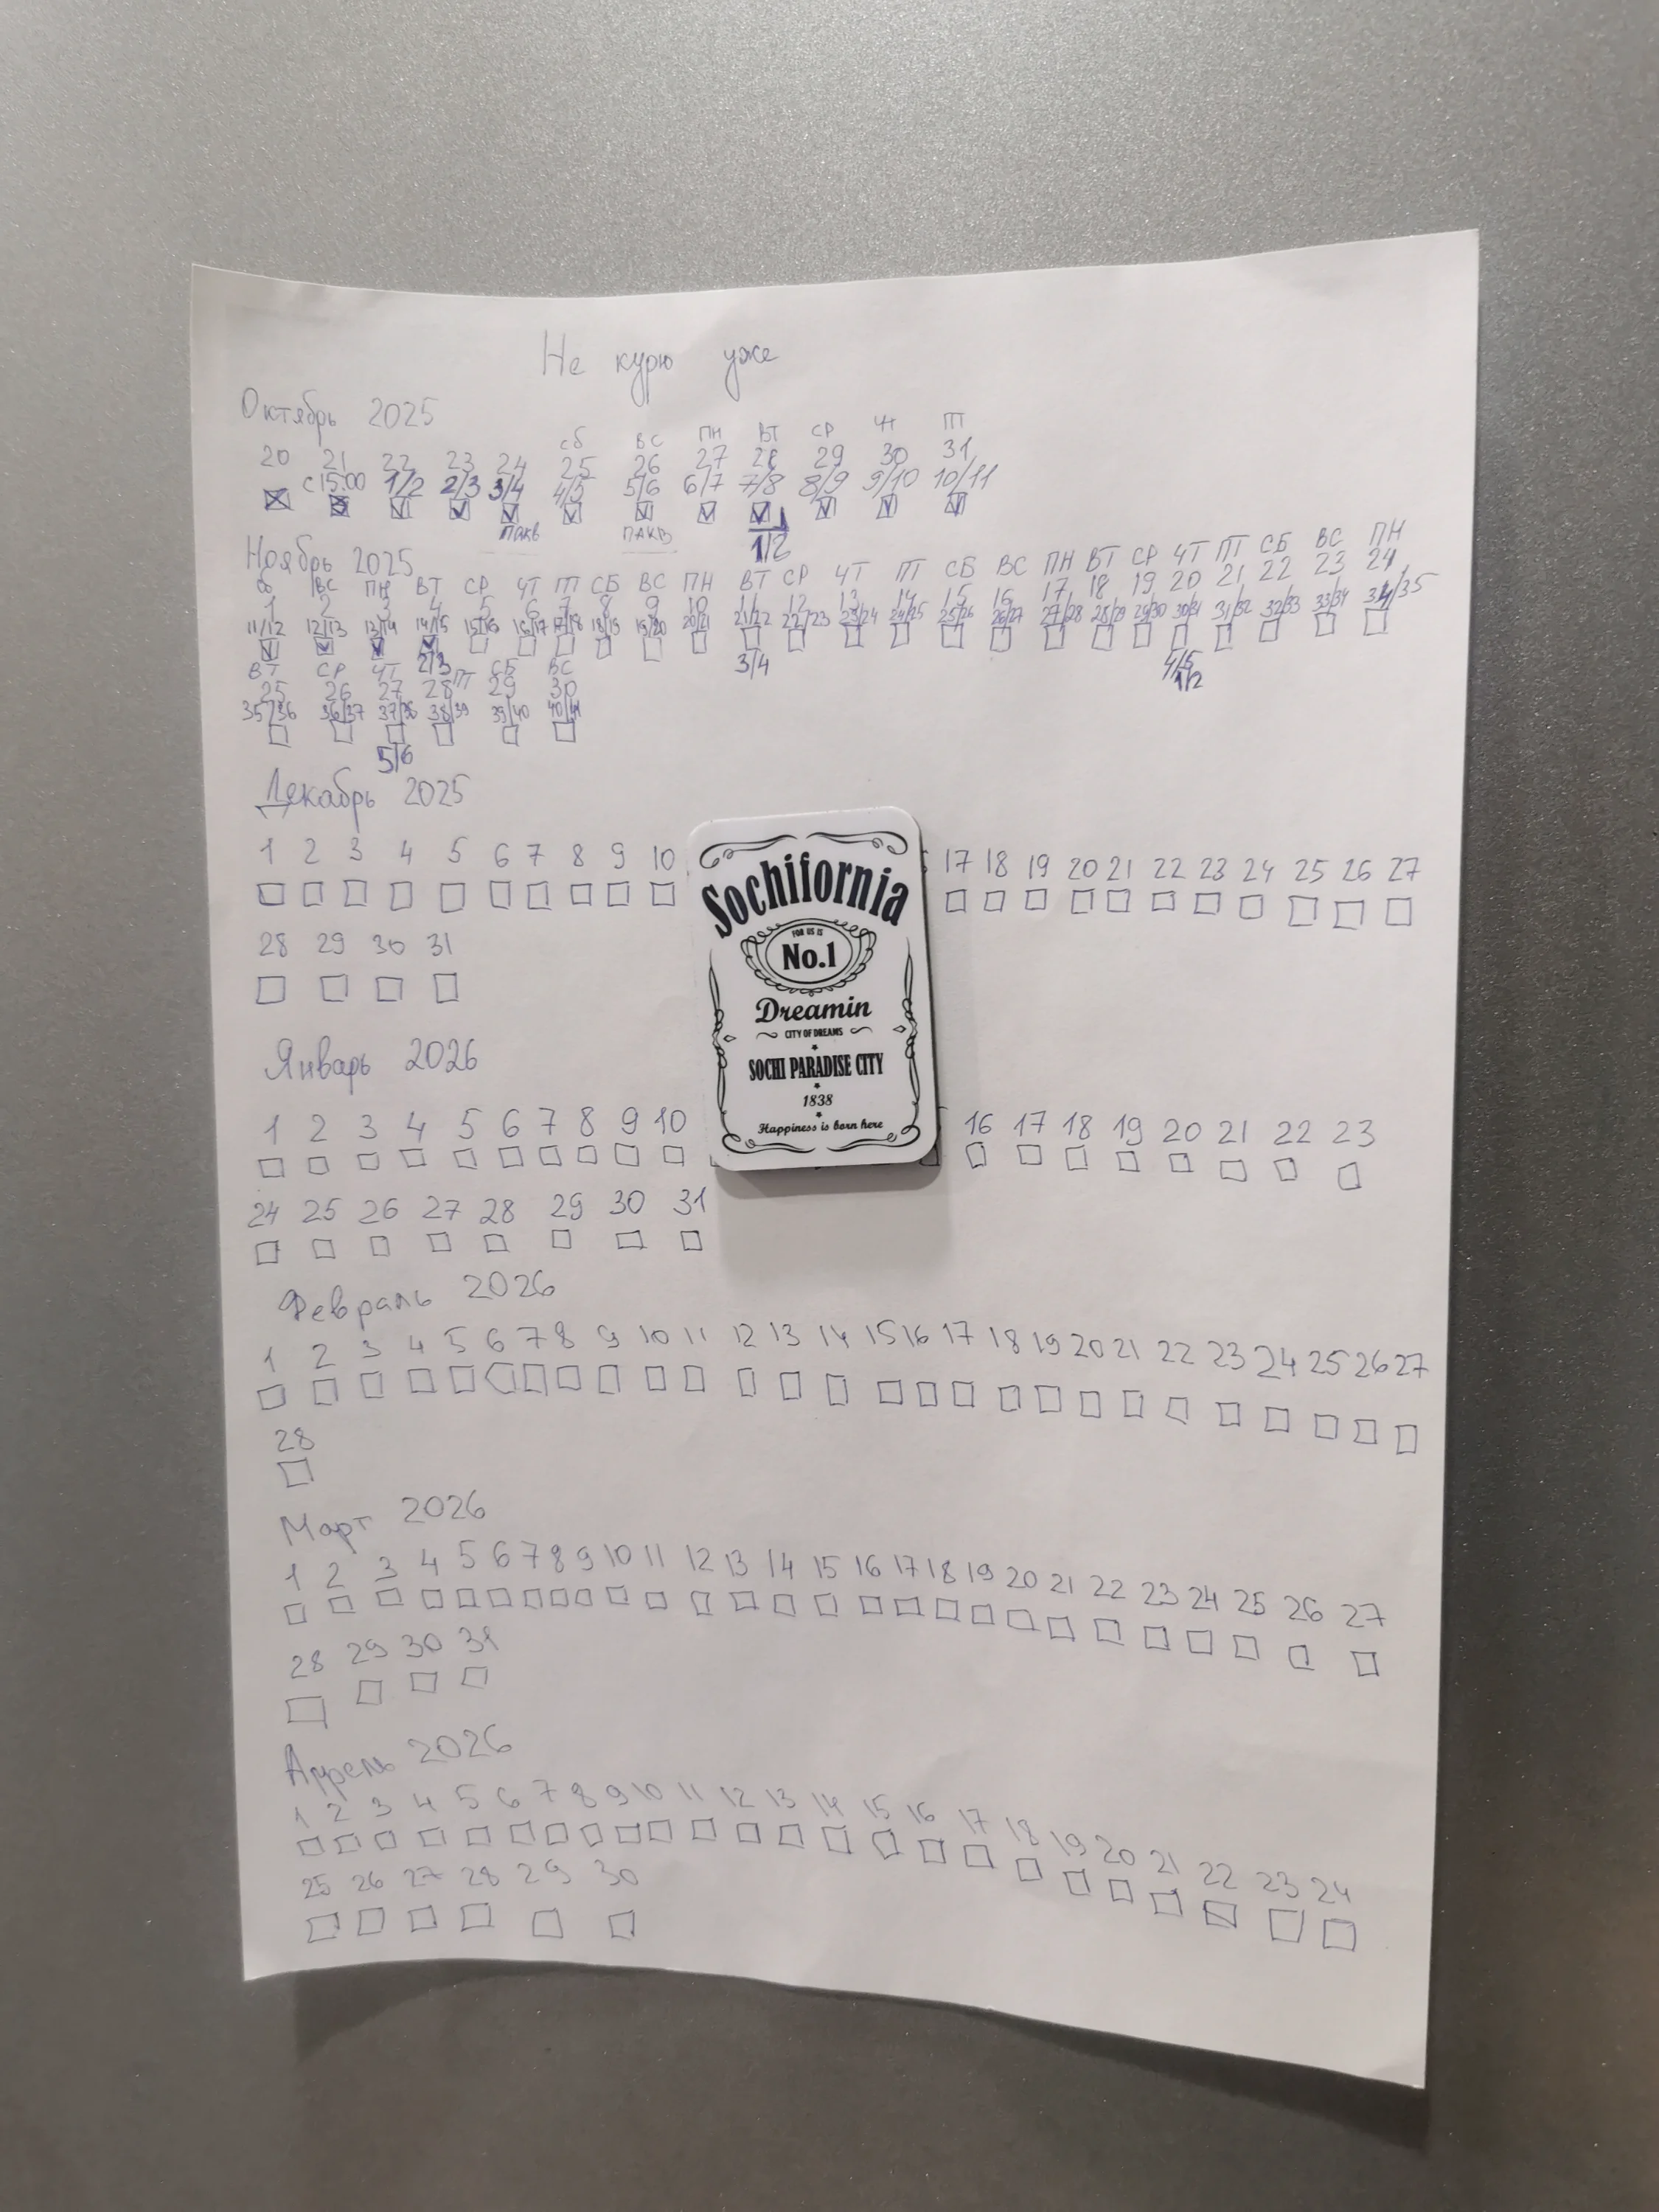 Не курю уже
Октябрь 2025
сб ВС ПН ВТ СР ЧТ ПТ
20 21 22 23 24 25 26 27 28 29 30 31
с 15:00 1/2 2/3 3/4 4/5 5/6 6/7 7/8 8/9 9/10 10/11
пакв ПАКВ 1
1/2
Ноябрь 2025
сб ВС ПН ВТ СР ЧТ ПТ СБ ВС ПН ВТ СР ЧТ ПТ СБ ВС ПН ВТ СР ЧТ ПТ СБ ВС ПН
1 2 3 4 5 6 7 8 9 10 11 12 13 14 15 16 17 18 19 20 21 22 23 24
11/12 12/13 13/14 14/15 15/16 16/17 17/18 18/19 19/20 20/21 21/22 22/23 23/24 24/25 25/26 26/27 27/28 28/29 29/30 30/31 31/32 32/33 33/34 34/35
2/3 3/4 4/5
1/2
ВТ СР ЧТ ПТ СБ ВС
25 26 27 28 29 30
35/36 36/37 37/38 38/39 39/40 40/41
5/6
Декабрь 2025
1 2 3 4 5 6 7 8 9 10 17 18 19 20 21 22 23 24 25 26 27
28 29 30 31
Sochifornia
FOR US IS
No.1
Dreamin
CITY OF DREAMS
SOCHI PARADISE CITY
1838
Happiness is born here
Январь 2026
1 2 3 4 5 6 7 8 9 10 16 17 18 19 20 21 22 23
24 25 26 27 28 29 30 31
Февраль 2026
1 2 3 4 5 6 7 8 9 10 11 12 13 14 15 16 17 18 19 20 21 22 23 24 25 26 27
28
Март 2026
1 2 3 4 5 6 7 8 9 10 11 12 13 14 15 16 17 18 19 20 21 22 23 24 25 26 27
28 29 30 31
Апрель 2026
1 2 3 4 5 6 7 8 9 10 11 12 13 14 15 16 17 18 19 20 21 22 23 24
25 26 27 28 29 30